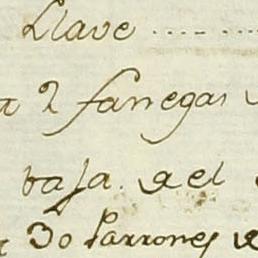 Llave ........
2 fanegas
vaja. del
30 Parrones de